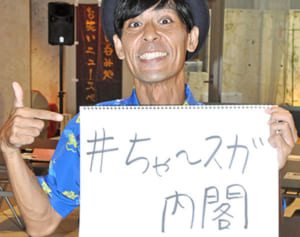 #ちゃ〜スガ
内閣